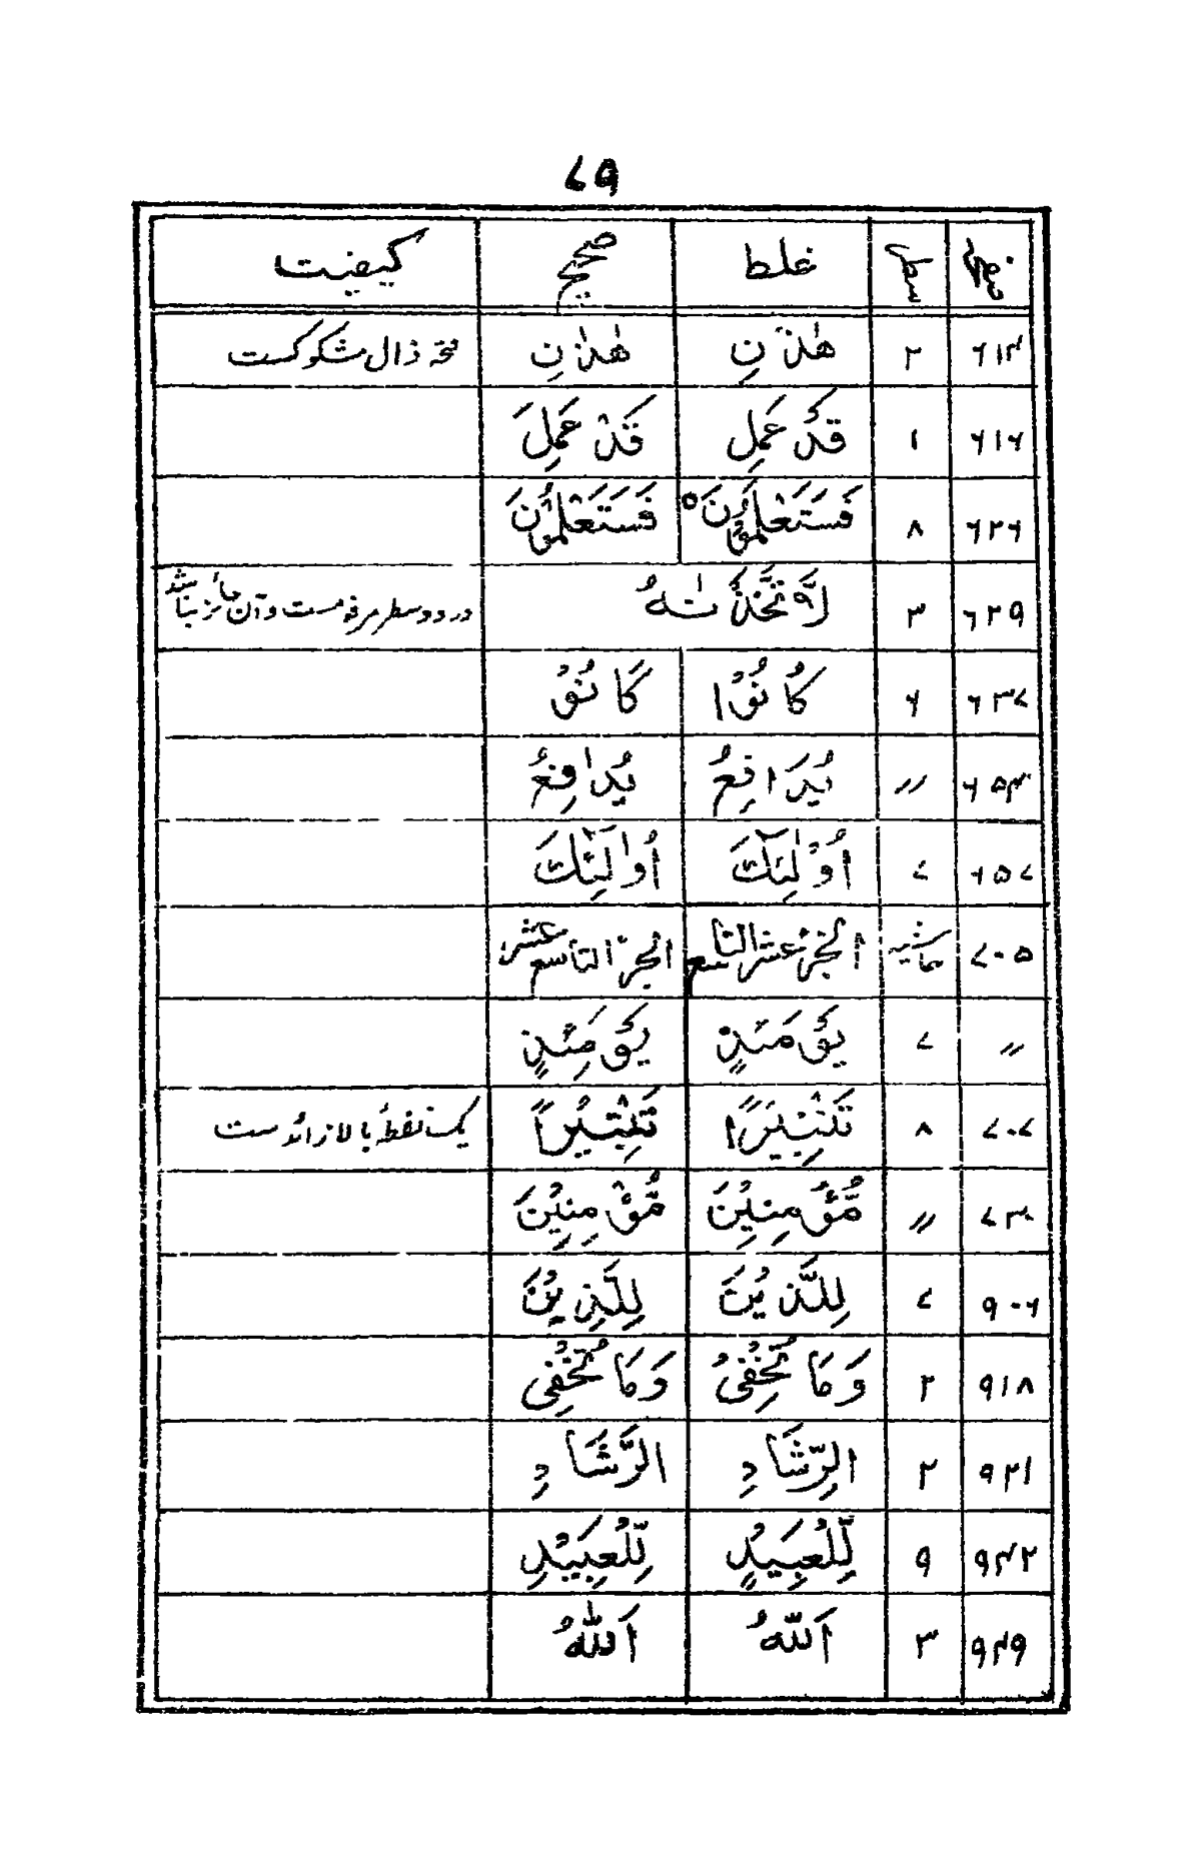 ٧٩
صفحه سطر غلط صحیح کیفیت
٦١٤ ٢ هٰذَنِ هٰذٰنِ فتحہ ذال مشکوکست
٦١٦ ١ قَدَّ عَمِلِ قَدْ عَمِلَ
٦٢٦ ٨ فَسَتَعْلَمُوْنَ ٥ فَسَتَعْلَمُوْنَ
٦٢٩ ٣ لَاتَّخَذْنٰهُ در دو سطر مرقومست وآن جائز نباشد
٦٣٧ ٦ كَانُوْا كَانُوْ
٦٥٤ // يُدَافِعُ يُدٰفِعُ
٦٥٧ ٧ اُوْلٰٓئِكَ اُولٰٓئِكَ
٧٠٥ حاشیہ الجزء عشر التاسع الجزء التاسع عشر
// ٧ يَوْمَئِذٍ يَوْمَئِذٍ
٧٠٧ ٨ تَتْبِيْرًا تَتْبِيْرًا یک نقطهٔ بالا زائدست
٧٣٠ // مُّؤْمِنِيْنَ مُّؤْمِنِيْنَ
٩٠٦ ٧ لِلَّذِيْنَ لِلَّذِيْنَ
٩١٨ ٢ وَمَا تُخْفِىْ وَمَا تُخْفِى
٩٢١ ٢ الرِّشَادِ الرَّشَادِ
٩٤٢ ٩ لِّلْعَبِيْدٍ لِّلْعَبِيْدِ
٩٤٩ ٣ اَللّهُ اَللّٰهُ